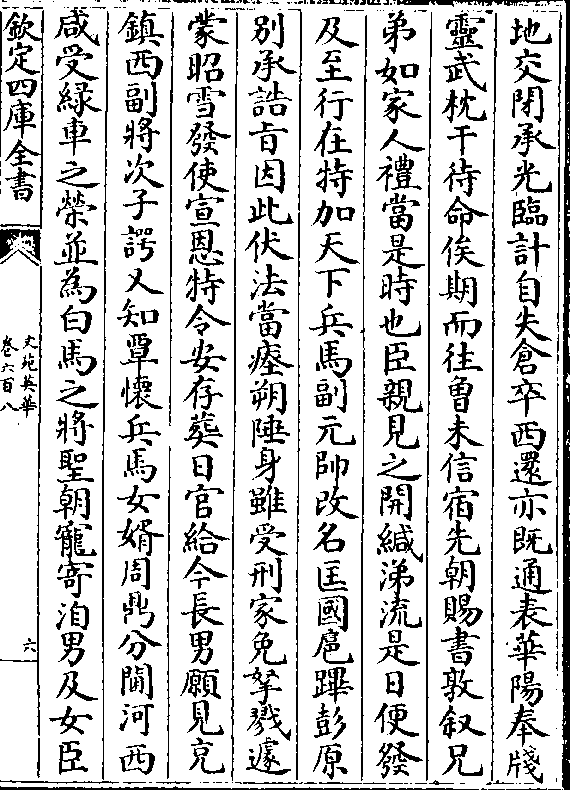 地交閉承光臨計自失倉卒西還亦既通表華陽奉牋
靈武枕干待命俟期而往曽未信宿先朝賜書敦叙兄
弟如家人禮當是時也臣親見之開緘涕流是日便發
及至行在特加天下兵馬副元帥改名匡國扈蹕彭原
別承誥旨因此伏法當瘞朔陲身雖受刑家免孥戮遽
蒙昭雪發使宣恩特令安存葬日官給今長男願見充
鎮西副將次子諤又知覃懷兵馬女婿周鼎分閫河西
咸受緑車之榮並為白馬之將聖朝寵寄洎男及女臣
欽定四庫全書
文苑英華
卷六百八
六